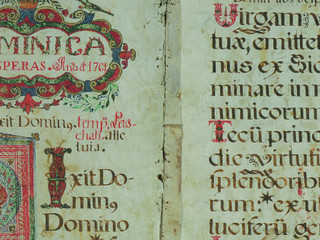 MINICA
SPERAS. Año et 1701
ixit Domin9 temp. Pas
chali. alle
tuia.
Ixit Do-
min9
Domino
Virgam v
tuæ, emittet
nus ex Sio
minare in m
nimicorum
Tecũ princi
die virtuti
splendoribu
rum: * ex u
luciferũ ge